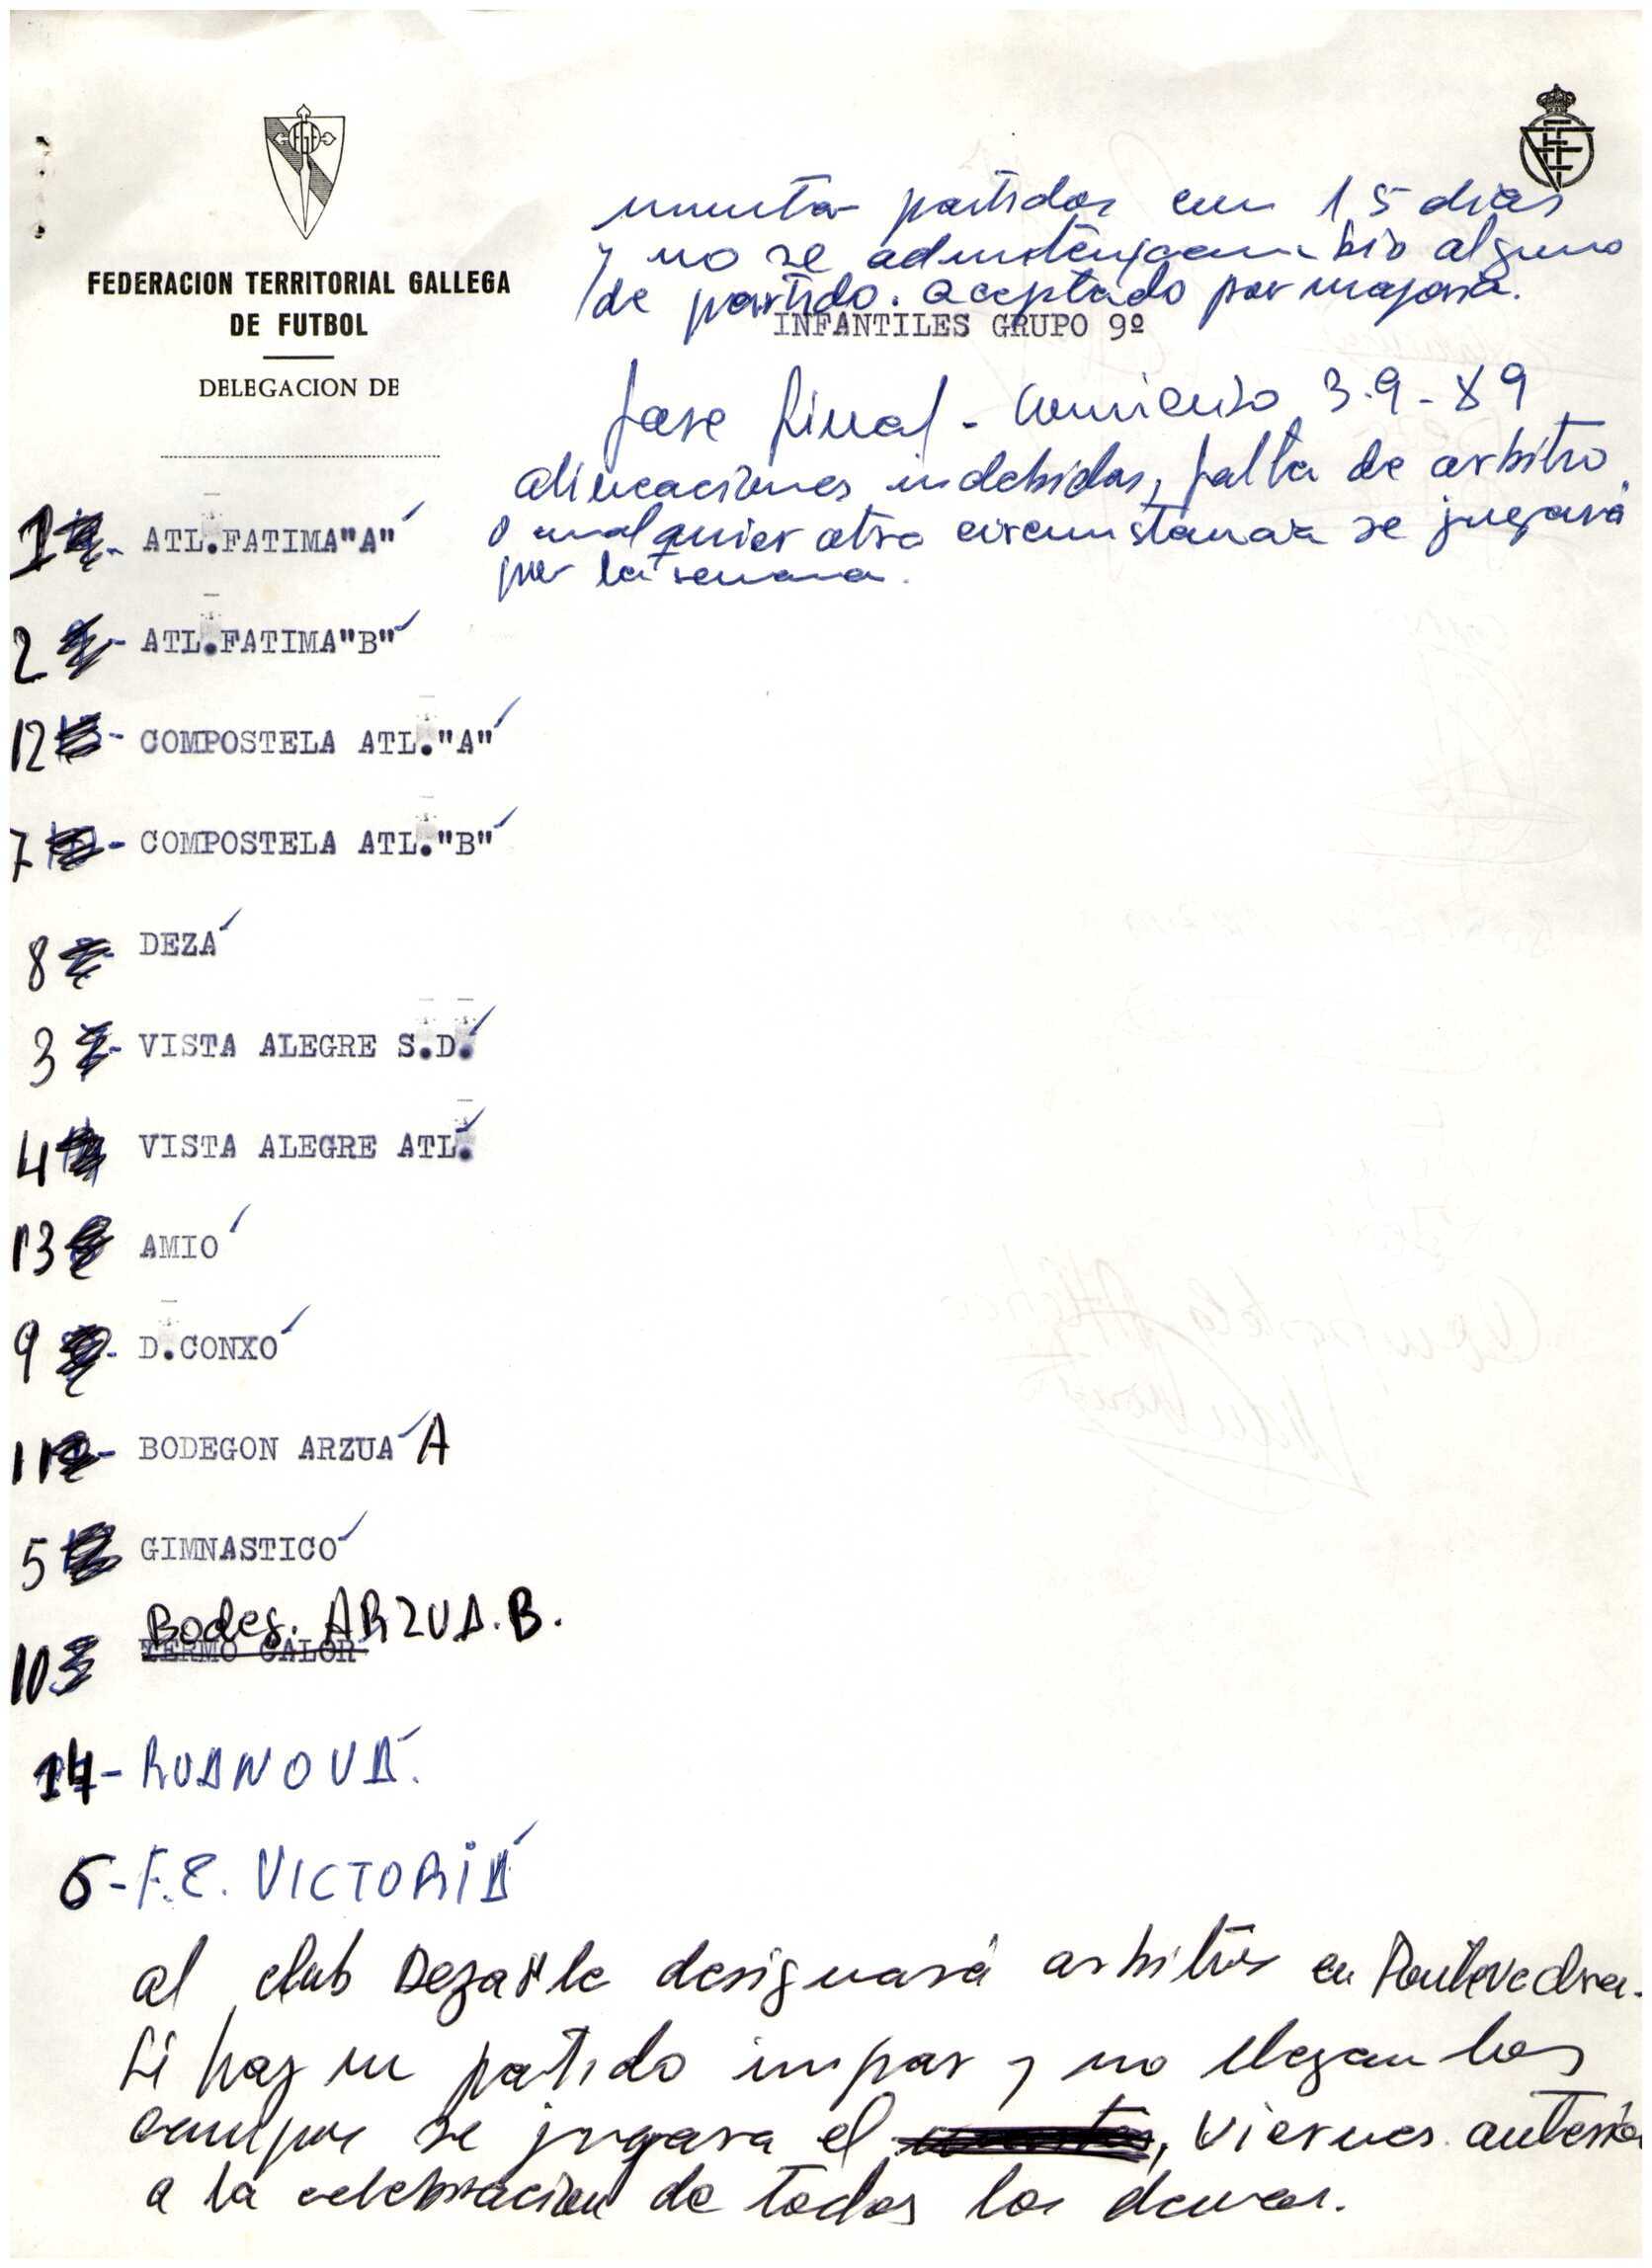 FEDERACION TERRITORIAL GALLEGA
DE FUTBOL
DELEGACION DE
partidos con 15 dias
y no se alguno
de partido. aceptado por mayoria.
INFANTILES GRUPO 9º
fase final - comienzo 3-9-89
alineaciones indebidas, falta de arbitro
o cualquier otra circunstancia se jugará
por la semana.
1 - ATL.FATIMA"A"
2 - ATL.FATIMA"B"
12 - COMPOSTELA ATL."A"
7 - COMPOSTELA ATL."B"
8 DEZA
3 - VISTA ALEGRE S.D.
4 VISTA ALEGRE ATL.
13 AMIO
9 - D.CONXO
11 - BODEGON ARZUA A
5 GIMNASTICO
Bodeg. ARZUA.B.
10 TERMO CALOR
14 - RUANOVA.
6 - F.E. VICTORIA
al club Deza se le designará arbitros en Pontevedra.
Si hay un partido impar y no llegan los
campos se jugara el viernes anterior
a la celebracion de todos los demas.